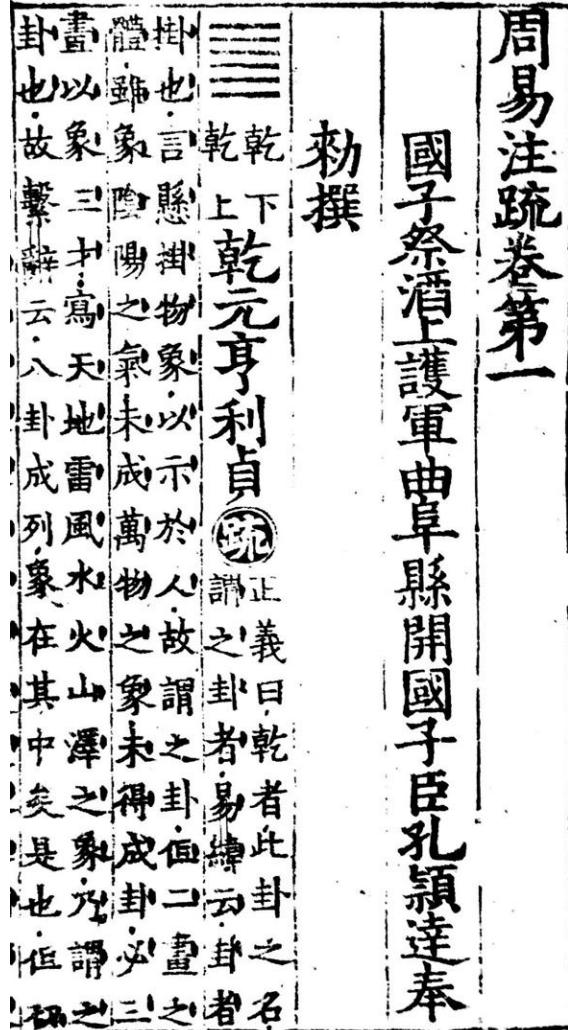 周易注疏卷第一
國子祭酒上護軍曲阜縣開國子臣孔頴達奉
勑撰
乾下
乾上
乾元亨利貞
疏
正義曰乾者此卦之名
謂之卦者易緯云卦者
掛也言懸掛物象以示於人故謂之卦但二畫之
體雖象陰陽之氣未成萬物之象未得成卦必三
畫以象三才寫天地雷風水火山澤之象乃謂之
卦也故繫辭云八卦成列象在其中矣是也但初